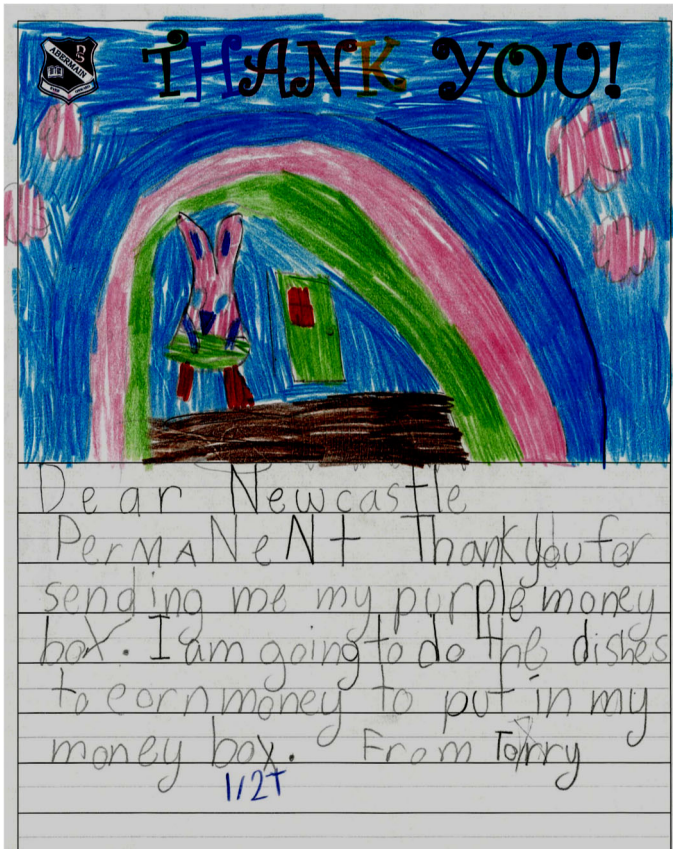 ABERMAIN
THANK YOU!
Dear Newcastle
PerMANeNt Thankyou for
sending me my purple money
box. I am going to do the dishes
to earn money to put in my
money box. From Torry
1/2T